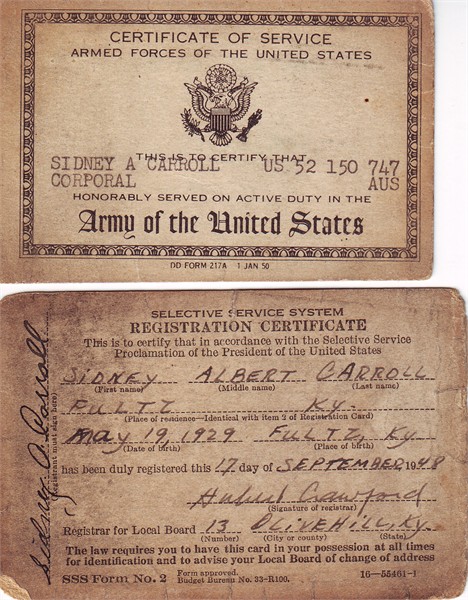 CERTIFICATE OF SERVICE
ARMED FORCES OF THE UNITED STATES
THIS IS TO CERTIFY THAT
SIDNEY A CARROLL US 52 150 747
CORPORAL AUS
HONORABLY SERVED ON ACTIVE DUTY IN THE
Army of the United States
DD FORM 217A 1 JAN 50
SELECTIVE SERVICE SYSTEM
REGISTRATION CERTIFICATE
This is to certify that in accordance with the Selective Service
Proclamation of the President of the United States
SIDNEY ALBERT CARROLL
(First name) (Middle name) (Last name)
FULTZ KY.
(Place of residence—Identical with item 2 of Registration Card)
May 19, 1929 FULTZ, Ky.
(Date of birth) (Place of birth)
has been duly registered this 17 day of SEPTEMBER, 1948
Crawford
(Signature of registrar)
Registrar for Local Board 13 OLIVE HILL, KY.
(Number) (City or county) (State)
The law requires you to have this card in your possession at all times
for identification and to advise your Local Board of change of address
SSS Form No. 2 Form approved. Budget Bureau No. 33-R100. 16—55461-1
Sidney A. Carroll
(Registrant must sign here)